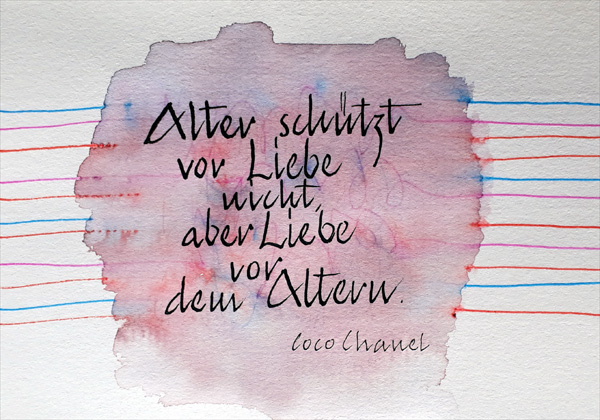 Alter schützt
vor Liebe
nicht,
aber Liebe
vor
dem Altern.
Coco Chanel